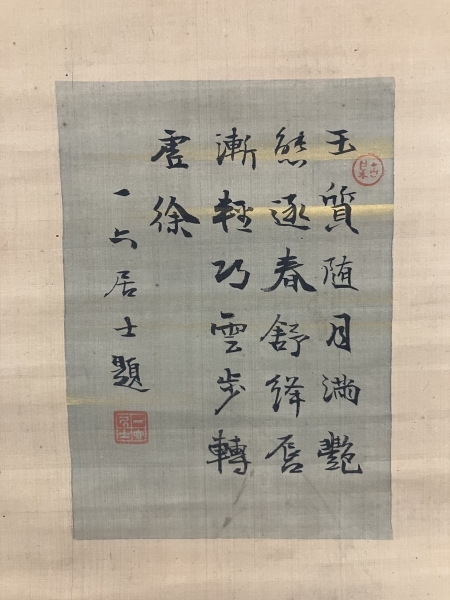 玉質随月満艶
態逐春舒絳唇
漸輕巧雲步轉
虚徐
一六居士題